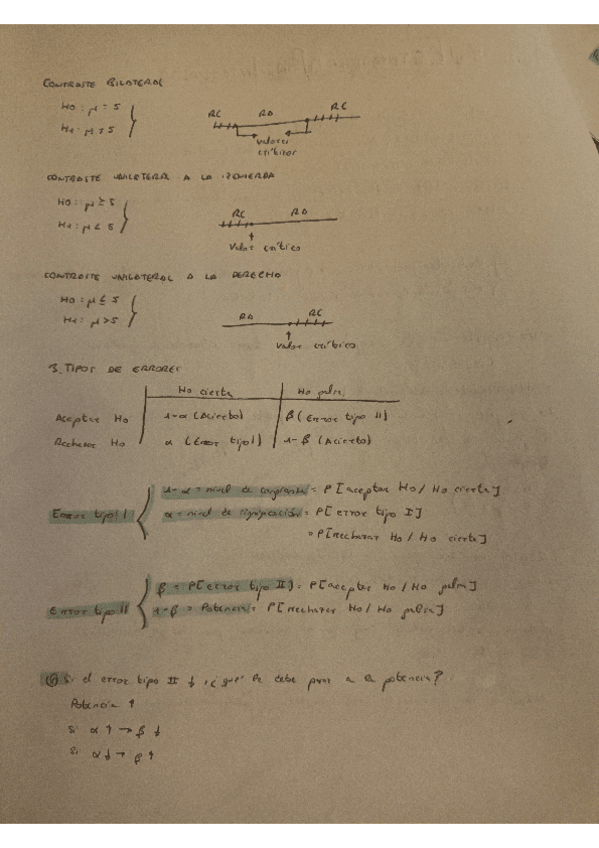 CONTRASTE BILATERAL
H0: μ = 5
H1: μ ≠ 5
RC RA RC
valores
críticos
CONTRASTE UNILATERAL A LA IZQUIERDA
H0: μ ≥ 5
H1: μ < 5
RC RA
valor crítico
CONTRASTE UNILATERAL A LA DERECHA
H0: μ ≤ 5
H1: μ > 5
RA RC
valor crítico
3. TIPOS DE ERRORES
H0 cierta H0 falsa
Aceptar H0 1-α (Acierto) β (Error tipo II)
Rechazar H0 α (Error tipo I) 1-β (Acierto)
1-α = nivel de confianza = P[aceptar H0/H0 cierta]
Error tipo I α = nivel de significación = P[error tipo I]
= P[rechazar H0/H0 cierta]
β = P[error tipo II] = P[aceptar H0/H0 falsa]
Error tipo II 1-β = Potencia = P[rechazar H0/H0 falsa]
Si el error tipo II ↓, ¿qué le debe pasar a la potencia?
Potencia ↑
Si α ↑ → β ↓
Si α ↓ → β ↑